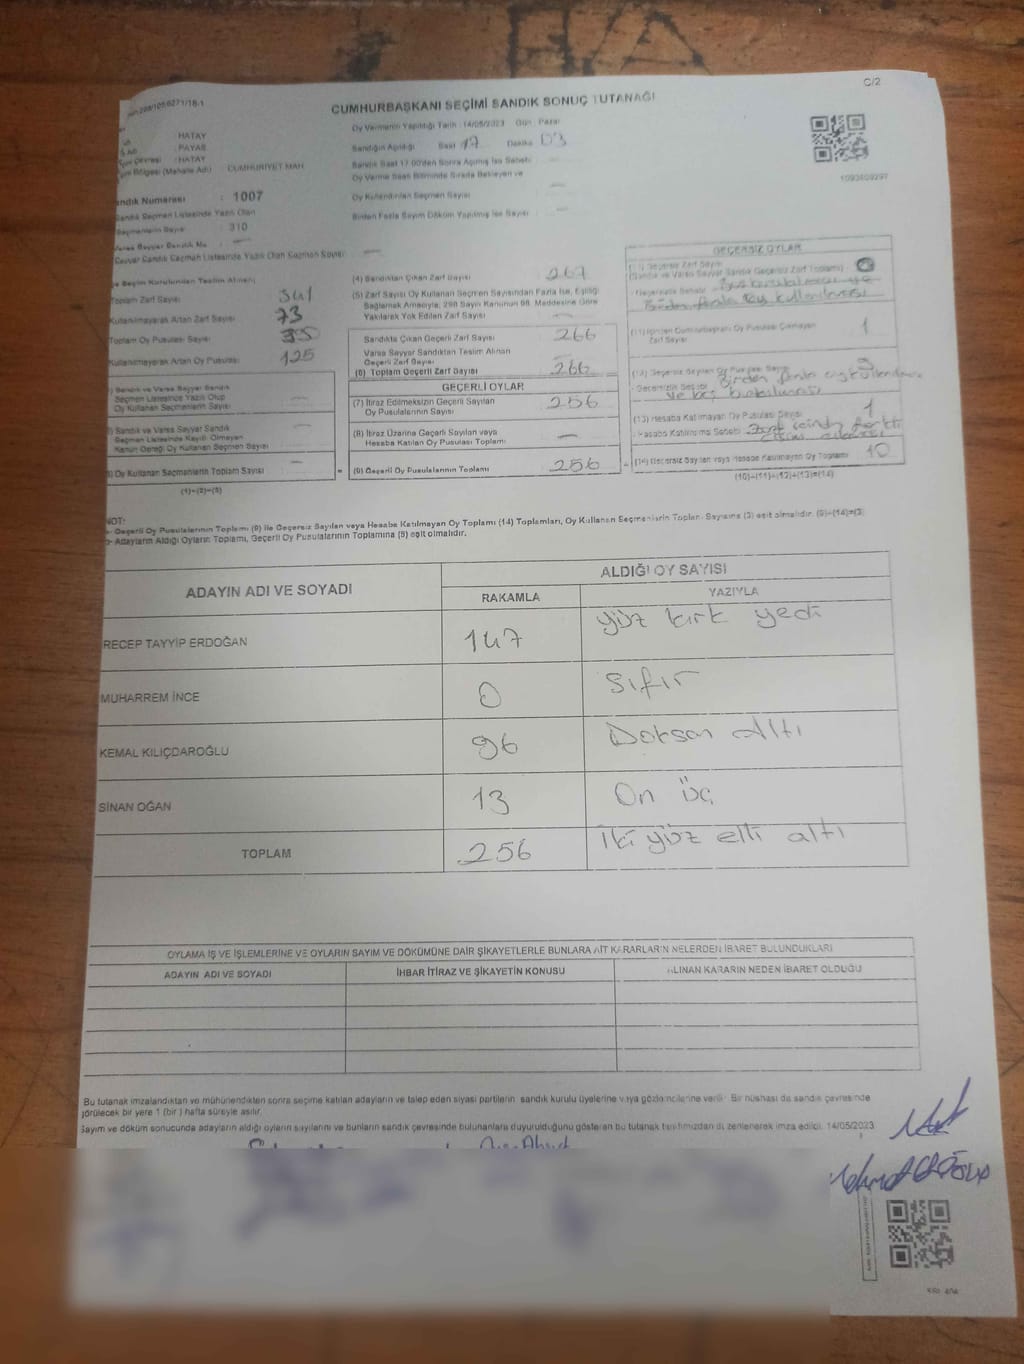 C/2
CUMHURBAŞKANI SEÇİMİ SANDIK SONUÇ TUTANAĞI
Oy Vermenin Yapıldığı Tarih : 14/05/2023 Gün : Pazar
HATAY
Sandığın Açıldığı Saat 17 Dakika 03
PAYAS
HATAY
Sandık Saat 17.00'den Sonra Açılmış İse Sebebi
Bölgesi (Mahalle Adı) CUMHURİYET MAH.
Oy Verme Saati Bitiminde Sırada Bekleyen ve
Oy Kullandırılan Seçmen Sayısı
1093809297
Sandık Numarası : 1007
Birden Fazla Sayım Döküm Yapılmış İse Sayısı
Sandık Seçmen Listesinde Yazılı Olan
Seçmenlerin Sayısı : 310
Seyyar Sandık Seçmen Listesinde Yazılı Olan Seçmen Sayısı
İlçe Seçim Kurulundan Teslim Alınan
Toplam Zarf Sayısı 341
Kullanılmayarak Artan Zarf Sayısı 73
Toplam Oy Pusulası Sayısı
Kullanılmayarak Artan Oy Pusulası 125
Sandık ve Varsa Seyyar Sandık
Seçmen Listesinde Yazılı Olup
Oy Kullanan Seçmenlerin Sayısı
Sandık ve Varsa Seyyar Sandık
Seçmen Listesinde Kayıtlı Olmayan
Kanun Gereği Oy Kullanan Seçmen Sayısı
Oy Kullanan Seçmenlerin Toplam Sayısı
(1)+(2)=(3)
(4) Sandıktan Çıkan Zarf Sayısı 267
(5) Zarf Sayısı Oy Kullanan Seçmen Sayısından Fazla İse, Eşitliği
Sağlamak Amacıyla, 298 Sayılı Kanunun 98. Maddesine Göre
Yakılarak Yok Edilen Zarf Sayısı
Sandıkta Çıkan Geçerli Zarf Sayısı 266
Varsa Seyyar Sandıktan Teslim Alınan
Geçerli Zarf Sayısı
(6) Toplam Geçerli Zarf Sayısı 266
GEÇERLİ OYLAR
(7) İtiraz Edilmeksizin Geçerli Sayılan
Oy Pusulalarının Sayısı 256
(8) İtiraz Üzerine Geçerli Sayılan veya
Hesaba Katılan Oy Pusulası Toplamı
(9) Geçerli Oy Pusulalarının Toplamı 256
GEÇERSİZ OYLAR
Geçersiz Zarf Sayısı
(Sandık ve Varsa Seyyar Sandık Geçersiz Zarf Toplamı)
Geçersizlik Sebebi
Birden fazla kullanılması
Cumhurbaşkanı Oy Pusulası Çıkmayan
Zarf Sayısı 1
(12) Geçersiz Sayılan Oy Pusulası Sayısı 8
Geçersizlik Sebebi Birden fazla
ve boş bırakılması
(13) Hesaba Katılmayan Oy Pusulası Sayısı 1
Hesaba Katılmama Sebebi Zarf içinden farklı
(14) Geçersiz Sayılan veya Hesaba Katılmayan Oy Toplamı 10
(10)+(11)+(12)+(13)=(14)
NOT:
a- Geçerli Oy Pusulalarının Toplamı (9) ile Geçersiz Sayılan veya Hesaba Katılmayan Oy Toplamı (14) Toplamları, Oy Kullanan Seçmenlerin Toplam Sayısına (3) eşit olmalıdır. (9)+(14)=(3)
b- Adayların Aldığı Oyların Toplamı, Geçerli Oy Pusulalarının Toplamına (9) eşit olmalıdır.
ADAYIN ADI VE SOYADI
ALDIĞI OY SAYISI
RAKAMLA YAZIYLA
RECEP TAYYİP ERDOĞAN 147 Yüz kırk yedi
MUHARREM İNCE 0 Sıfır
KEMAL KILIÇDAROĞLU 96 Doksan altı
SİNAN OĞAN 13 On üç
TOPLAM 256 İki yüz elli altı
OYLAMA İŞ VE İŞLEMLERİNE VE OYLARIN SAYIM VE DÖKÜMÜNE DAİR ŞİKAYETLERLE BUNLARA AİT KARARLARIN NELERDEN İBARET BULUNDUKLARI
ADAYIN ADI VE SOYADI İHBAR İTİRAZ VE ŞİKAYETİN KONUSU ALINAN KARARIN NEDEN İBARET OLDUĞU
Bu tutanak imzalandıktan ve mühürlendikten sonra seçime katılan adayların ve talep eden siyasi partilerin sandık kurulu üyelerine veya gözlemcilerine verilir. Bir nüshası da sandık çevresinde
görülecek bir yere 1 (bir) hafta süreyle asılır.
Sayım ve döküm sonucunda adayların aldığı oyların sayılarını ve bunların sandık çevresinde bulunanlara duyurulduğunu gösteren bu tutanak tarafımızdan düzenlenerek imza edildi. 14/05/2023